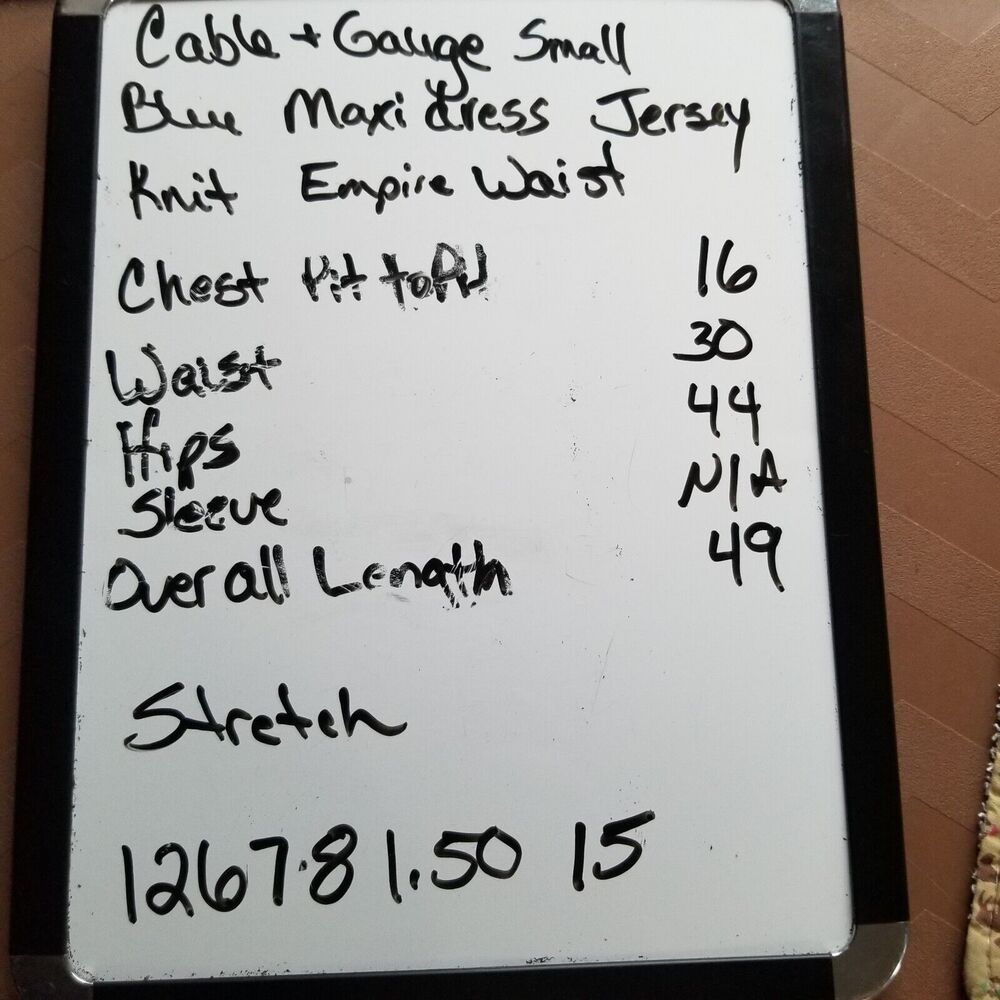 Cable + Gauge Small
Blue Maxi dress Jersey
Knit Empire Waist
Chest Pit to Pit 16
Waist 30
Hips 44
Sleeve N/A
Over all Length 49
Stretch
1267.8 1.50 15